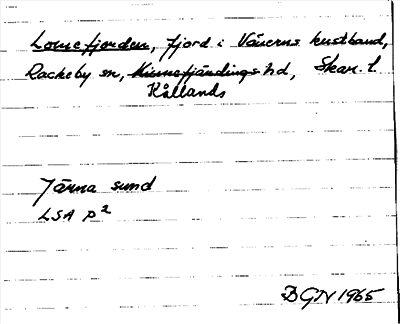 Lomefjorden, fjord i Vänerns kustband,
Rackeby sn, Kinnefjärdings hd, Skar. l.
Kållands
Järna sund
LSA p²
BGN 1965